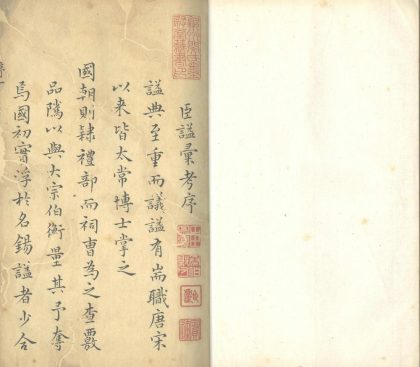 臣諡彙考序
諡典至重而議諡有耑職唐宋
以来皆太常博士掌之
國朝則隸禮部而祠曹為之查覈
品隲以與大宗伯衡量其予奪
焉國初實浮於名錫諡者少合